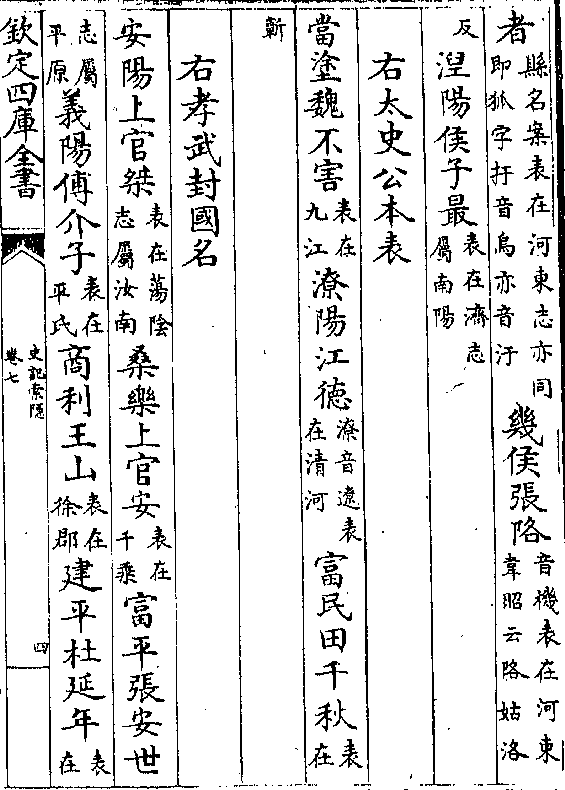 者縣名案表在河東志亦同即狐字扜音烏亦音汙幾侯張陒音機表在河東韋昭云陒姑洛
反湼陽侯子最表在濟志屬南陽
右太史公本表
當塗魏不害表在九江潦陽江徳潦音遼表在清河富民田千秋表在
蘄
右孝武封國名
安陽上官桀表在蕩陰志屬汝南桑樂上官安表在千乗富平張安世
志屬平原義陽傅介子表在平氏商利王山表在徐郡建平杜延年表在
欽定四庫全書
史記索隱
卷七
四